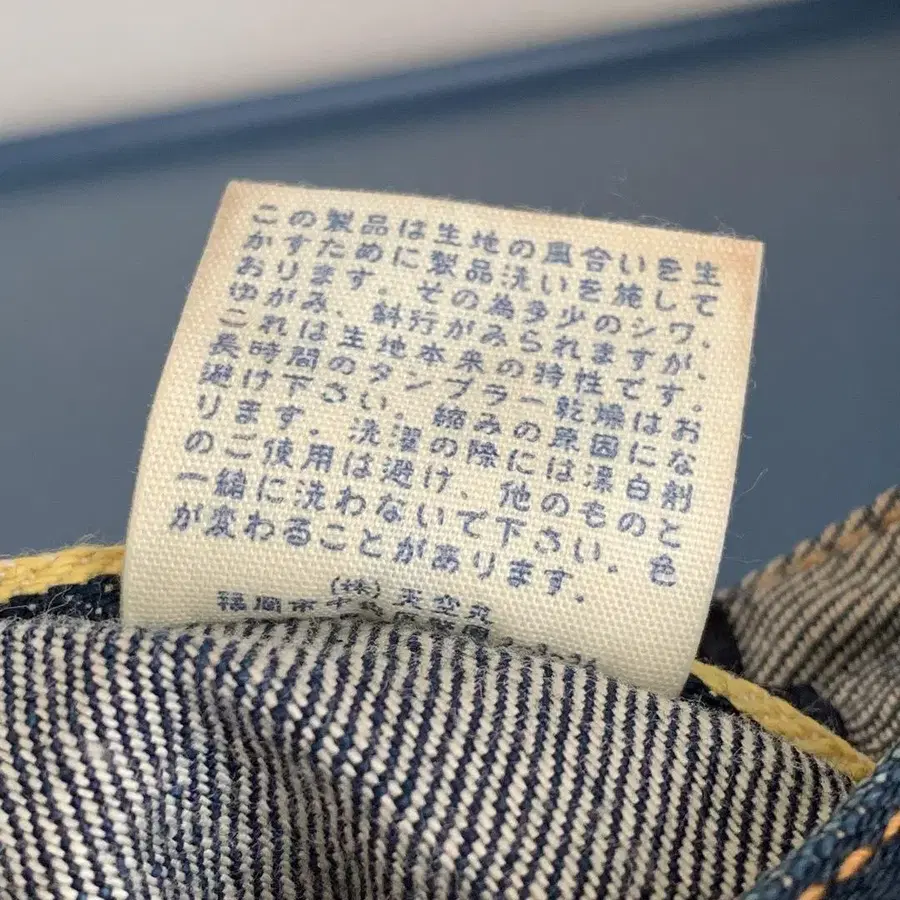 この製品は生地の風合いを生
かすために製品洗いを施して
おります。その為多少のシワ、
ゆがみ、斜行がみられますが、
これは生地本来の特性です。
長時間のタンブラー乾燥はお
避け下さい。縮みの原因にな
ります。洗濯の除には漂白剤
のご使用は避け、他のものと
一縮に洗わないで下さい。色
が変わることがあります。
(株)天空丸
福岡市